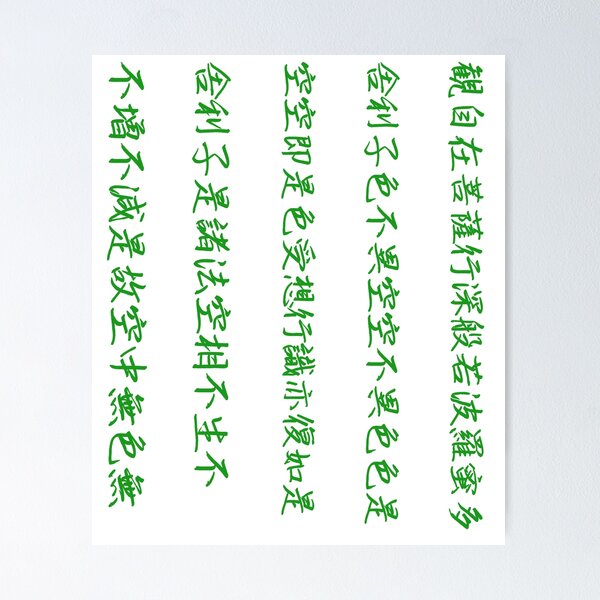 観自在菩薩行深般若波羅蜜多
舎利子色不異空空不異色色是
空空即是色受想行識亦復如是
舎利子是諸法空相不生不
不増不減是故空中無色無